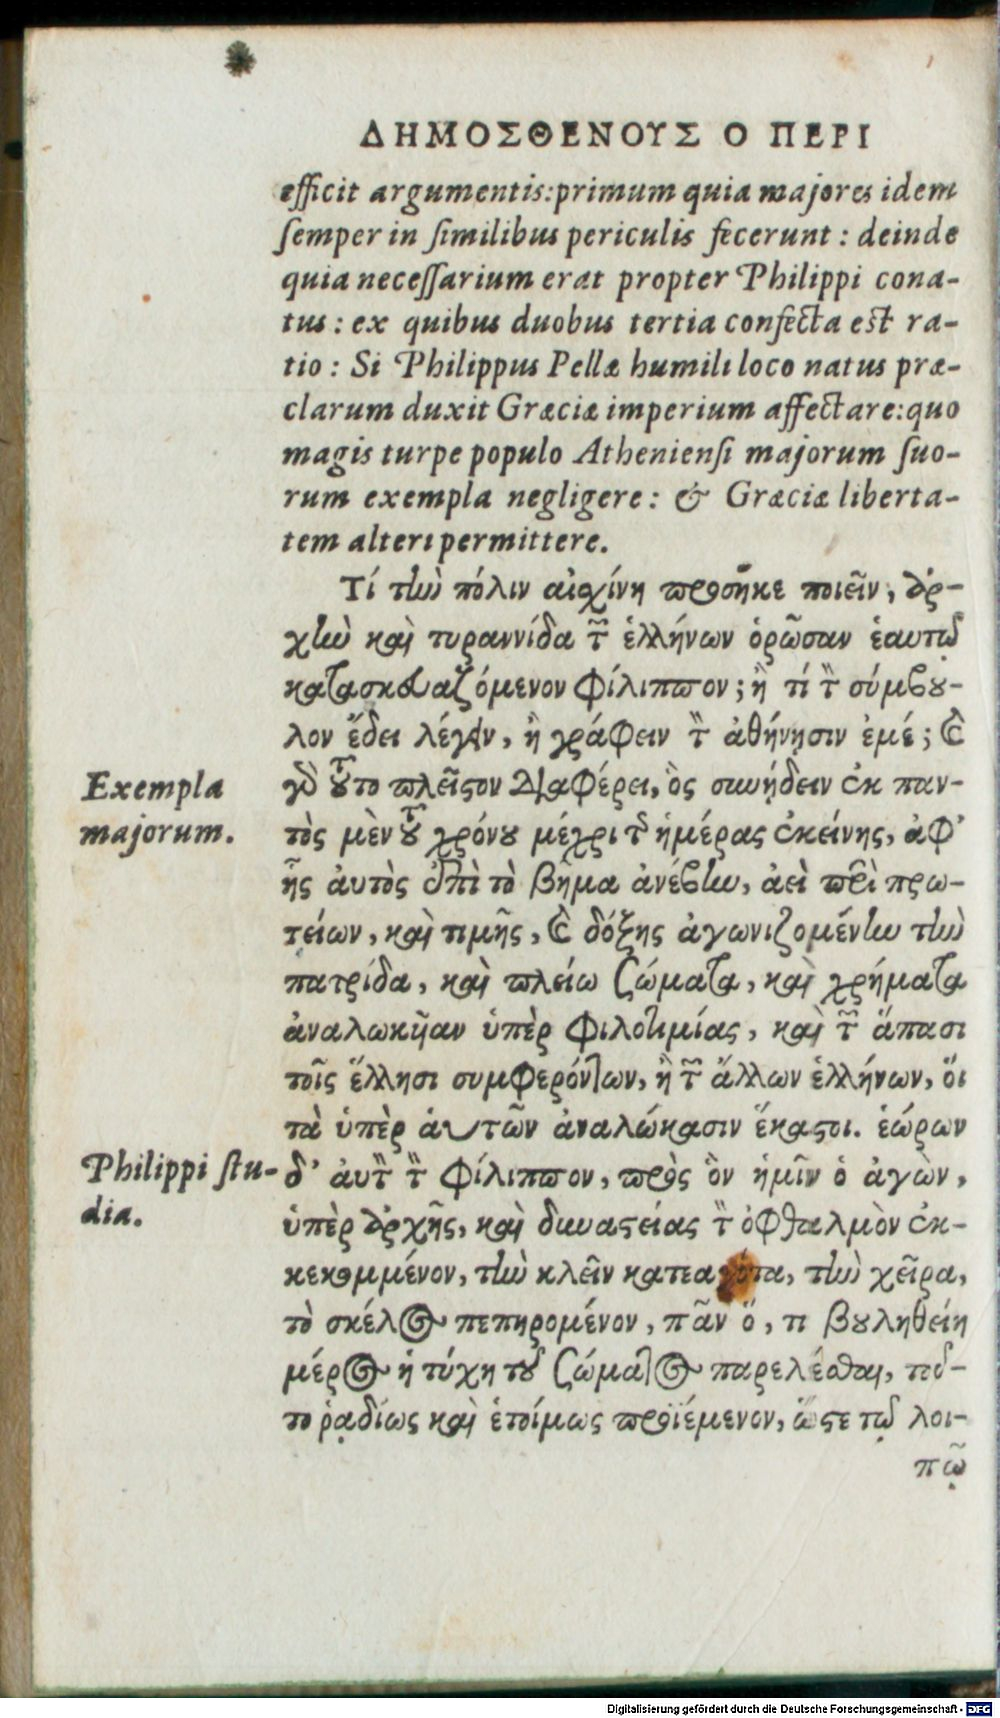 ΔΗΜΟΣΘΕΝΟΥΣ Ο ΠΕΡΙ
efficit argumentis: primum quia majores idem
ſemper in ſimilibus periculis fecerunt : deinde
quia neceſſarium erat propter Philippi cona-
tus : ex quibus duobus tertia confecta est ra-
tio : Si Philippus Pellæ humili loco natus præ-
clarum duxit Græciæ imperium affectare: quo
magis turpe populo Athenienſi majorum ſuo-
rum exempla negligere : & Græciæ liberta-
tem alteri permittere.
Τί τὴν πόλιν αἰχίνη προσῆκε ποιεῖν, ἀρ-
χὴν καὶ τυραννίδα τῶν ἑλλήνων ὁρῶσαν ἑαυτῷ
κατασκευαζόμενον Φίλιππον; ἢ τί τὸν σύμβου-
λον ἔδει λέγειν, ἢ γράφειν τὸν ἀθήνησιν ἐμέ; καὶ
Exempla
majorum.
γὰρ τοῦτο πλεῖστον διαφέρει, ὃς συνῄδειν ἐκ παν-
τὸς μὲν τοῦ χρόνου μέχρι τῆς ἡμέρας ἐκείνης, ἀφ᾽
ἧς αὐτὸς ἐπὶ τὸ βῆμα ἀνέβην, ἀεὶ περὶ πρω-
τείων, καὶ τιμῆς, καὶ δόξης ἀγωνιζομένην τὴν
πατρίδα, καὶ πλείω σώματα, καὶ χρήματα
ἀναλωκῆαν ὑπὲρ φιλοτιμίας, καὶ τῶν ἅπασι
τοῖς ἕλλησι συμφερόντων, ἢ τῶν ἄλλων ἑλλήνων, οἵ
τὰ ὑπὲρ αὑτῶν ἀναλώκασιν ἕκαστοι. ἑώρων
Philippi ſtu-
dia.
δ᾽ αὐτὸν τὸν Φίλιππον, πρὸς ὃν ἡμῖν ὁ ἀγὼν,
ὑπὲρ ἀρχῆς, καὶ δυναστείας τὸν ὀφθαλμὸν ἐκ-
κεκομμένον, τὴν κλεῖν κατεαγότα, τὴν χεῖρα,
τὸ σκέλος πεπηρομένον, πᾶν ὅ, τι βουληθείη
μέρος ἡ τύχη τοῦ σώματος παρελέσθαι, τοῦ-
το ῥᾳδίως καὶ ἑτοίμως προϊέμενον, ὥστε τῷ λοι-
πῷ
Digitalisierung gefördert durch die Deutsche Forschungsgemeinschaft - DFG